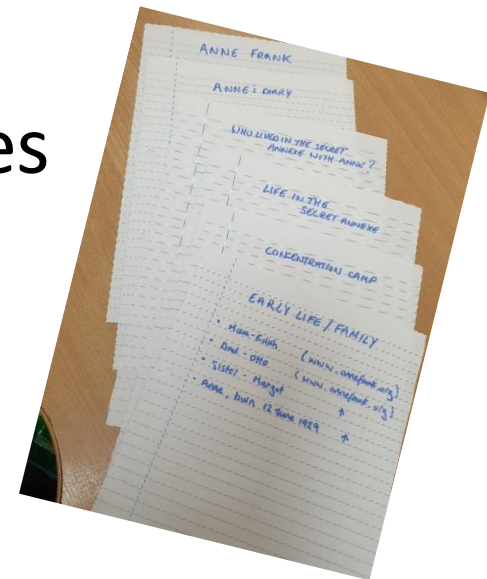 es
ANNE FRANK
ANNE'S DIARY
WHO LIVED IN THE SECRET
ANNEXE WITH ANNE?
LIFE IN THE
SECRET ANNEXE
CONCENTRATION CAMP
EARLY LIFE / FAMILY
• Mum - Edith (www.annefrank.org)
• Dad - Otto (www.annefrank.org)
• Sister - Margot "
• Anne, born 12 June 1929 "